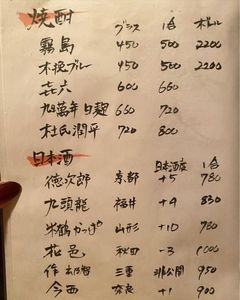 焼酎 グラス 1合 ボトル
霧島 450 500 2200
木挽ブルー 450 500 2200
㐂六 600 660
旭萬年白麹 660 720
杜氏潤平 720 800
日本酒 日本酒度 1合
徳次郎 京都 +5 780
九頭龍 福井 +4 830
米鶴かっぱ 山形 +10 780
花邑 秋田 -3 1000
作 三重 非公開 950
今西 奈良 +1 900